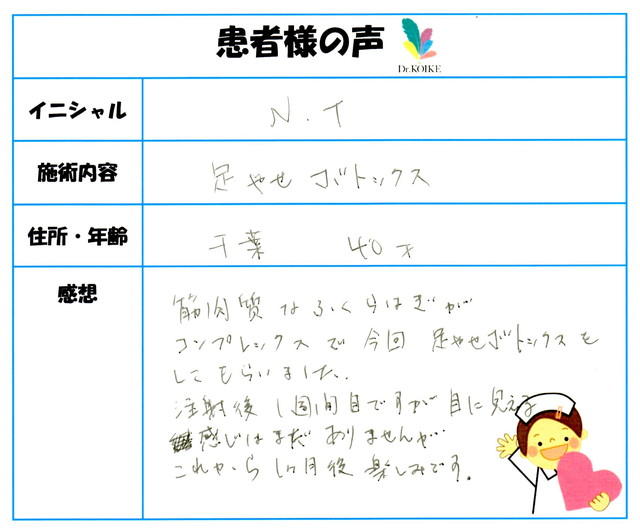 患者様の声
Dr.KOIKE
イニシャル N.T
施術内容 足やせ ボトックス
住所・年齢 千葉 40才
感想
筋肉質なふくらはぎが
コンプレックスで今回 足やせボトックスを
してもらいました。
注射後 1週間目ですが 目に見える
感じはまだ ありませんが…
これから 1ヶ月後 楽しみです。